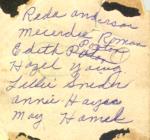 Reda anderson
Mecerdie Roman
Edith
Hazel young
Lillie Snedh
annie Hayse
May Hamel